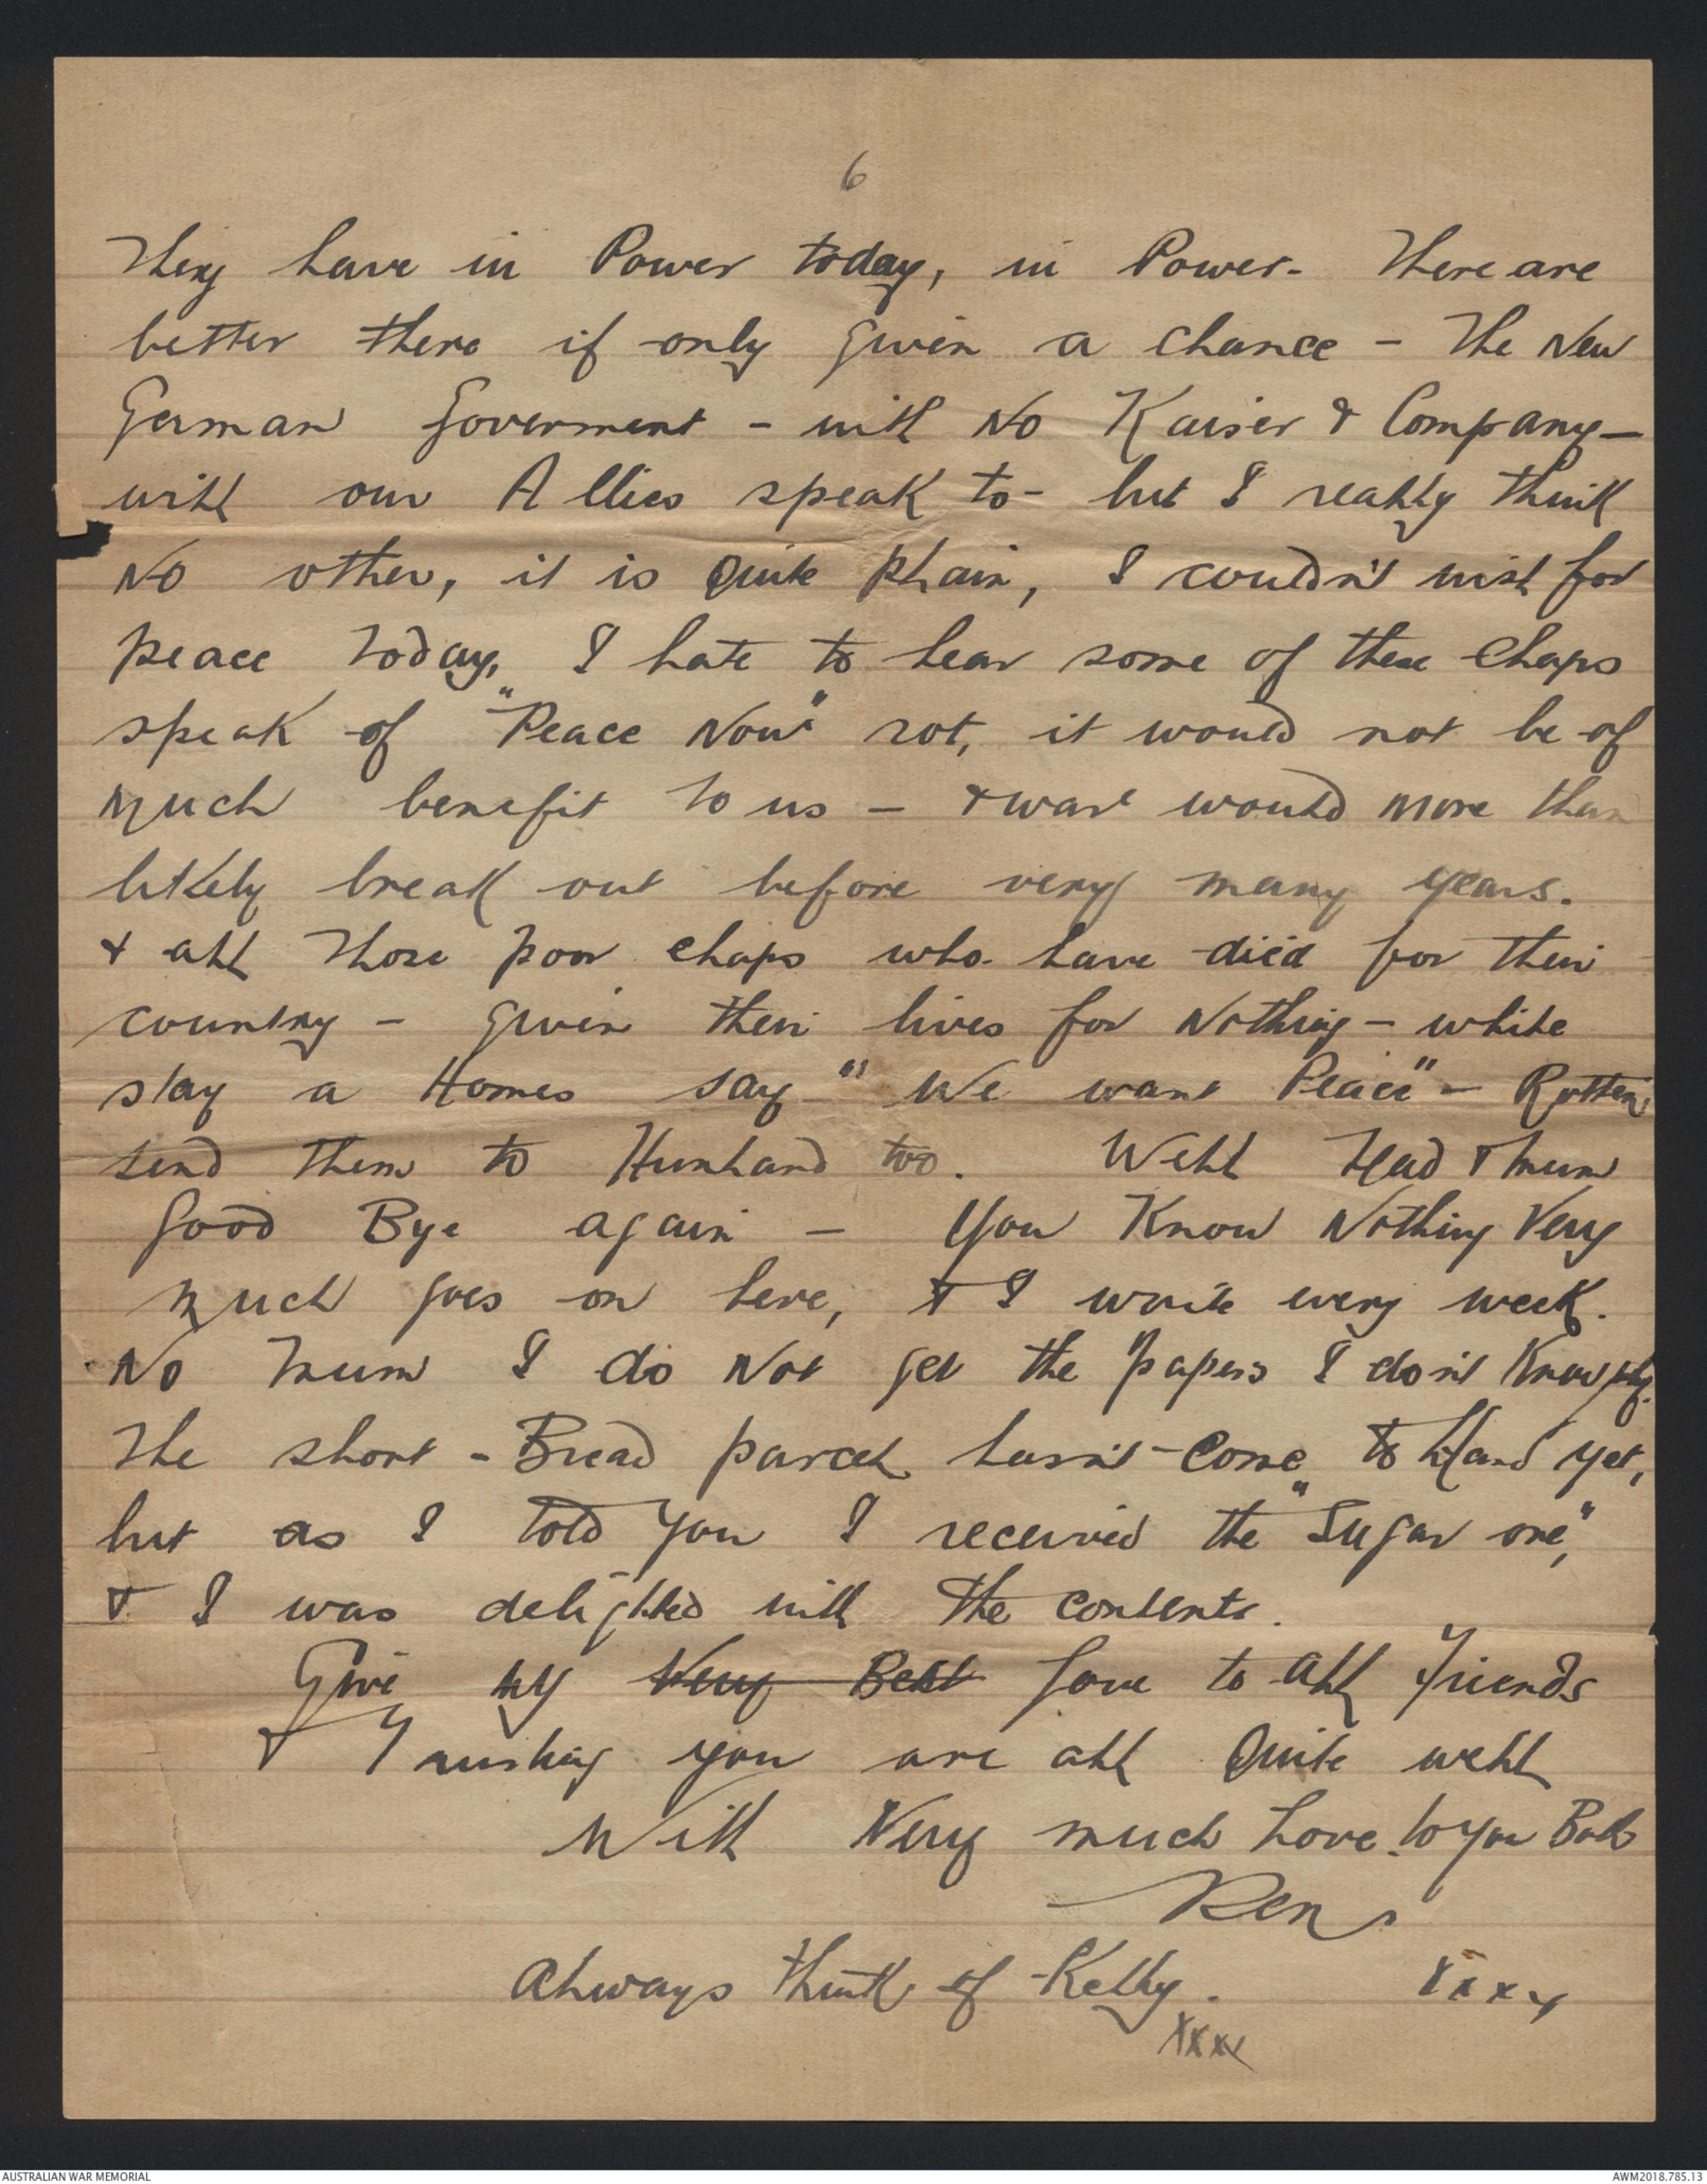 6
They have in Power today, in Power. There are
better there if only given a chance - The New
German Goverment - with No Kaiser & Company -
will our Allies speak to - but I really think
No other, it is Quite plain, I couldn't wish for
peace today, I hate to hear some of these Chaps
speak of "Peace Now" rot, it would not be of
much benefit to us - & war would more than
likely break out before very many years.
& all those poor chaps who have died for their
country - given their lives for Nothing - while
stay a Homes say "We want Peace" - Rotten
send them to Hunland too. Well Dad & Mum
Good Bye again - You Know Nothing Very
much goes on here, & I write every week.
No Mum I do Not get the papers I don't Know why.
The short - Bread parcel hasn't come to Hand yet,
but as I told you I received the "Sugar one",
& I was delighted with the contents.
Give my Very Best love to all Friends
& Trusting you are all Quite well
With Very much Love to you Both
Ren
Always think of Kelly. xxxx
xxxx
AUSTRALIAN WAR MEMORIAL AWM2018.785.13